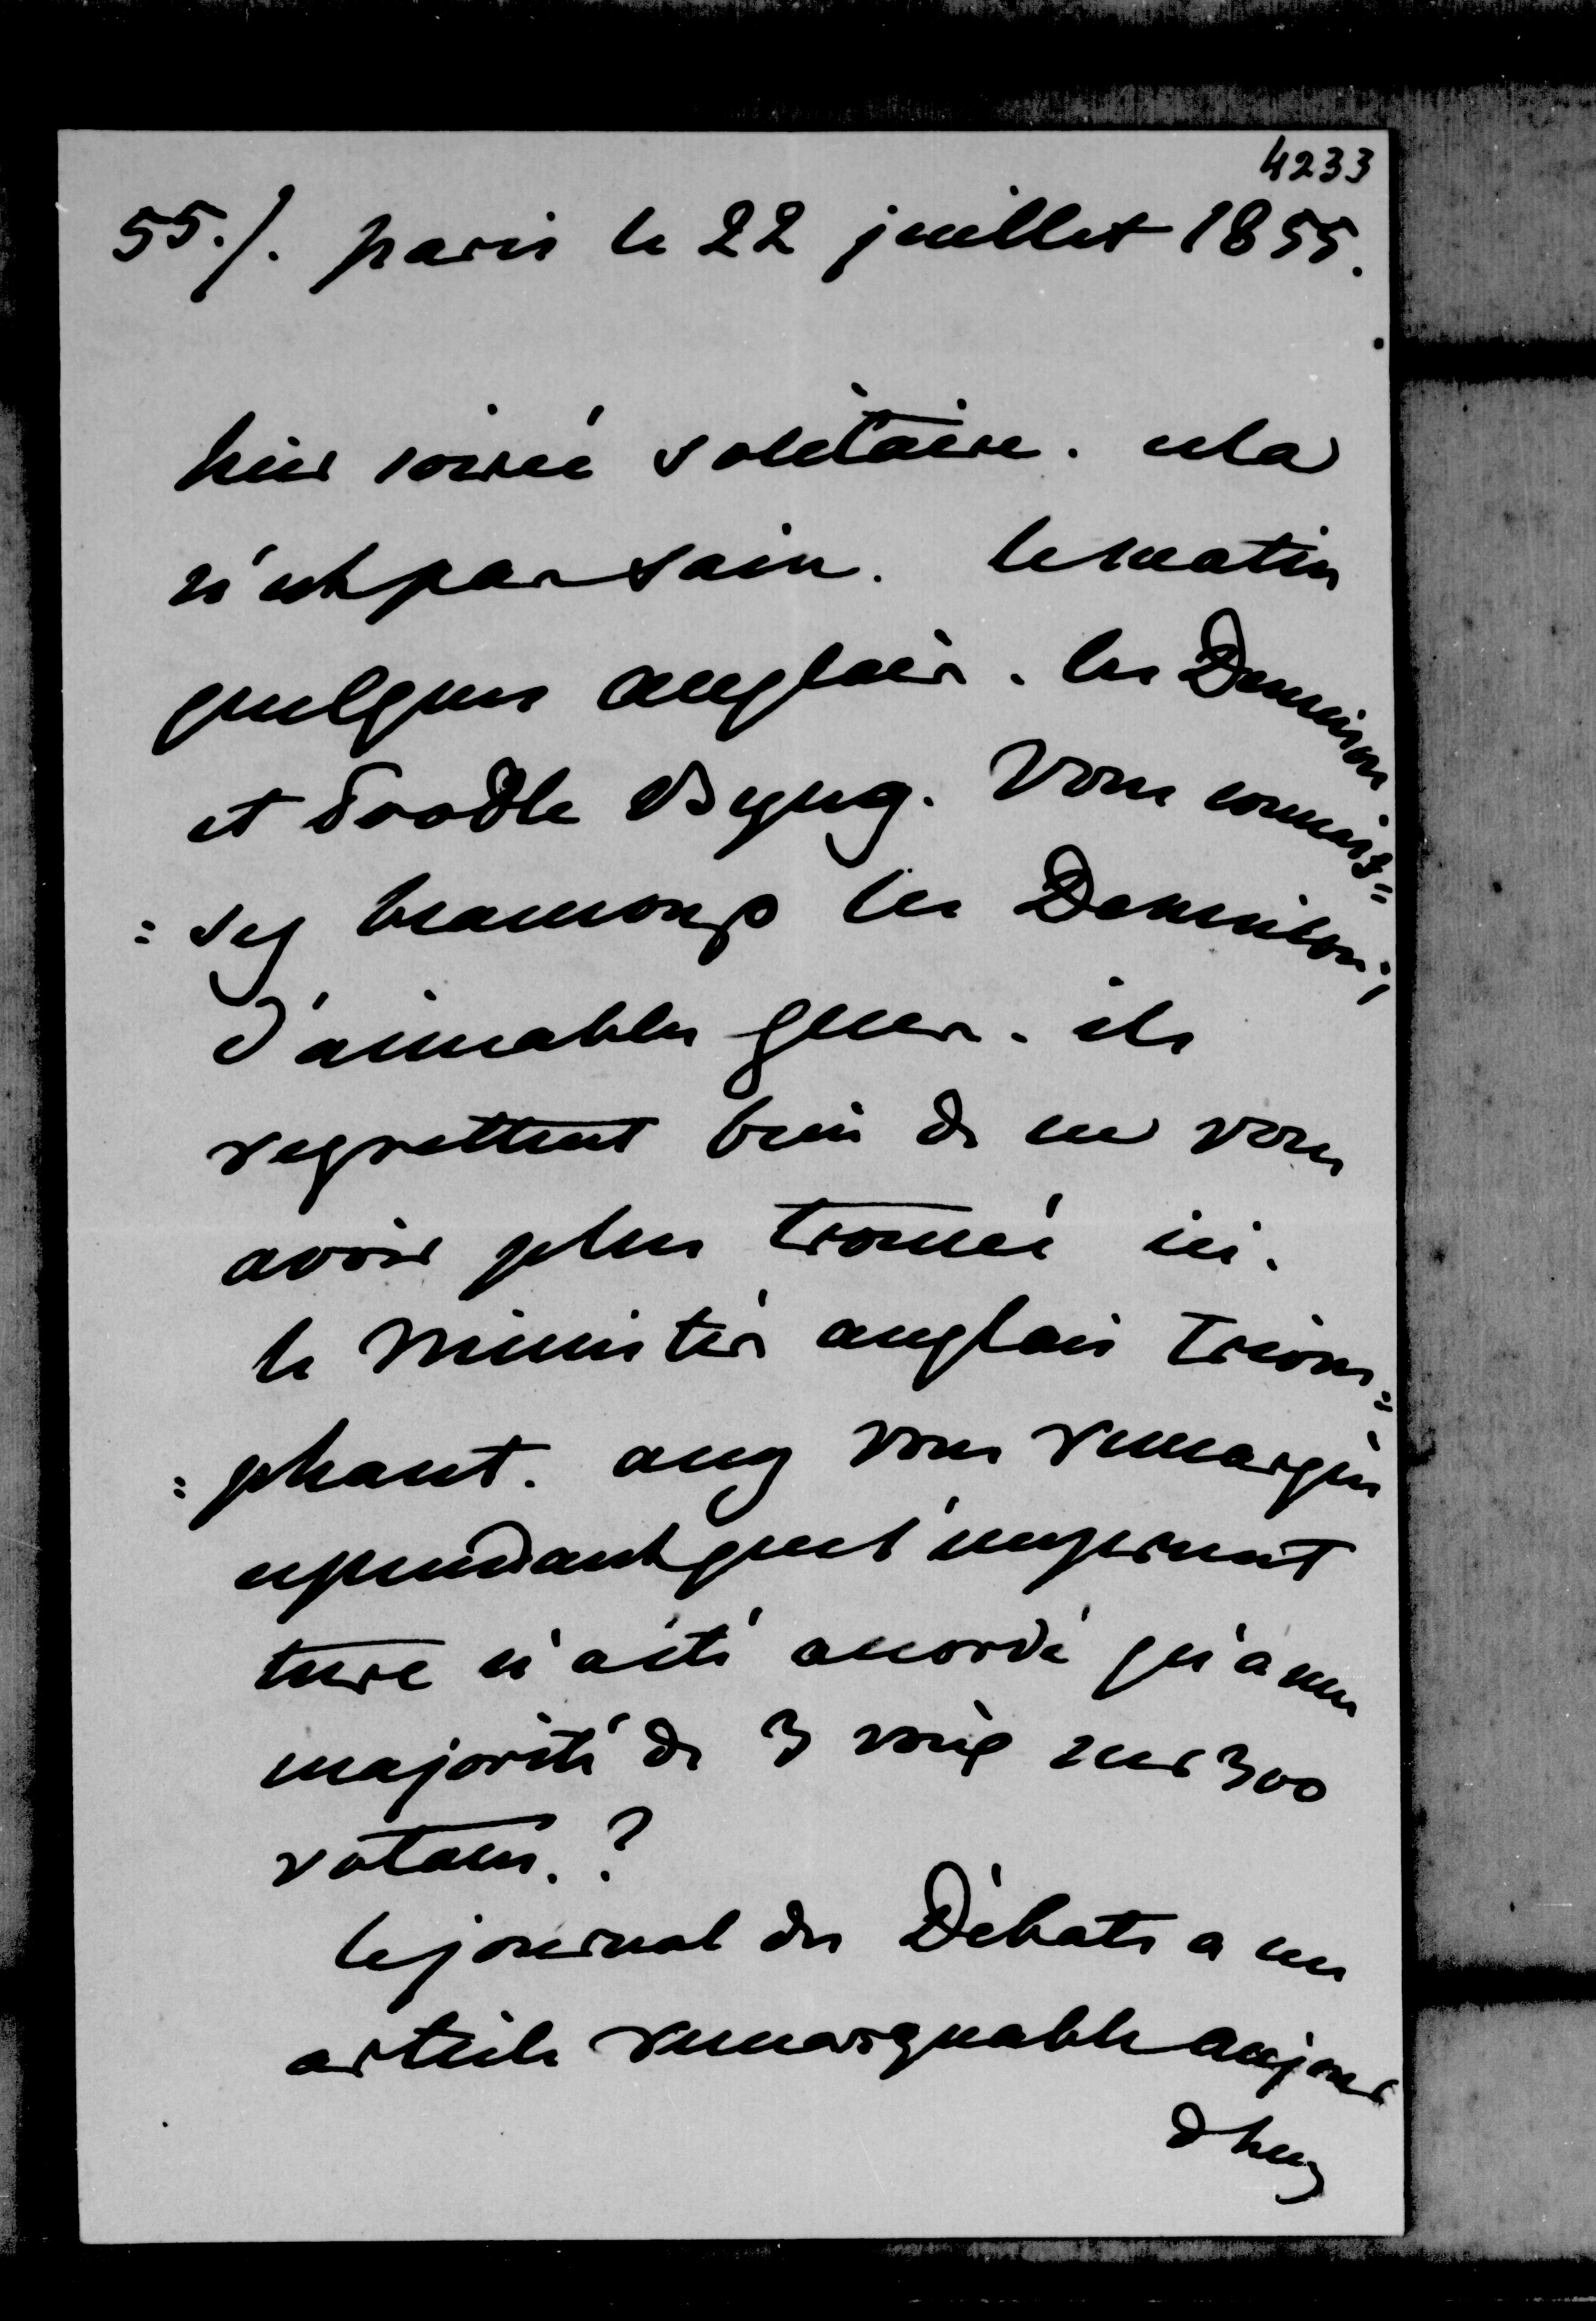 4233
55./. paris le 22 juillet 1855.
hier soirée solitaire. cela
n'est pas sain. le matin
quelques anglais. les Dennison
et Poodle Byng. Vous connais=
=sez beaucoup les Dennison;
d'aimables gens. ils
regrettent bien de ne vous
avoir plus trouvé ici.
le Ministère anglais triom=
=phant. avez vous remarqué
cependant que l'emprunt
turc n'a été accordé qu'à une
majorité de 3 voix sur 300
votans.?
le journal des Débats a un
article remarquable aujour
dhuy